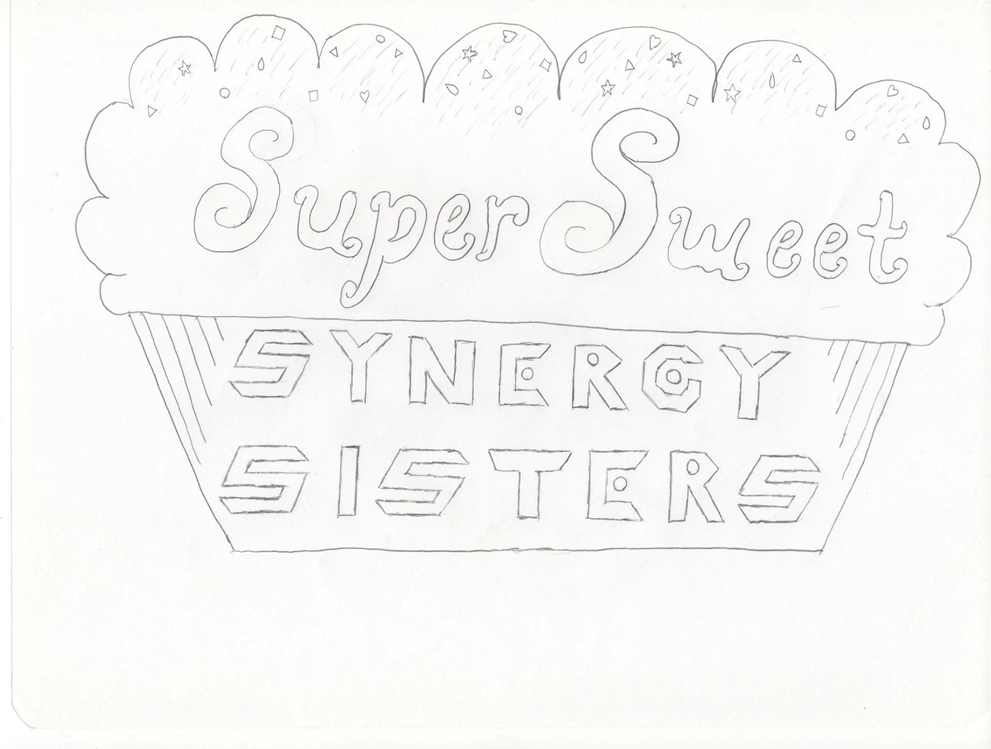 Super Sweet
SYNERGY
SISTERS